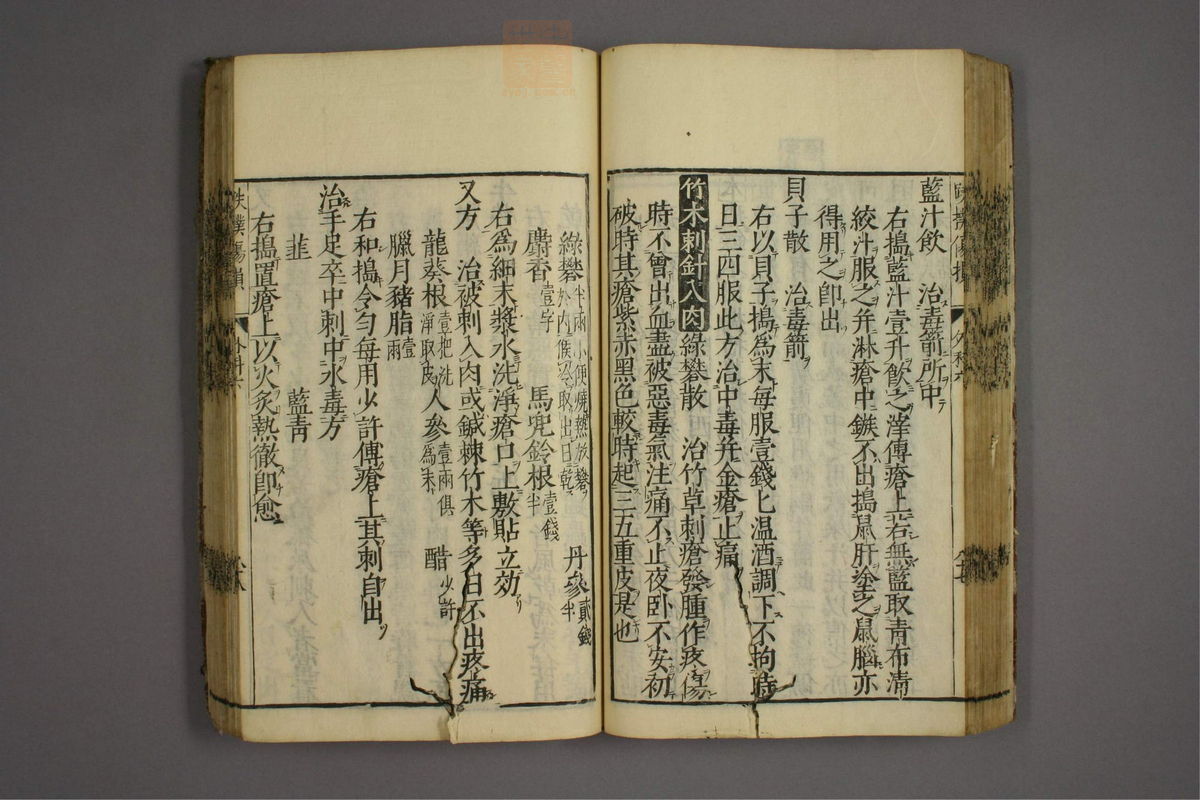 藍汁飲　治毒箭所中
右搗藍汁壹升飲之滓傅瘡上若無藍取青布漬
絞汁服之并淋瘡中鏃不出搗鼠肝塗之鼠腦亦
得用之卽出
貝子散　治毒箭
右以貝子搗為末每服壹錢匕温酒調下不拘時
日三四服此方治中毒并金瘡止痛
竹木刺針入肉　綠礬散　治竹草刺瘡發腫作疼傷
時不曾出血盡被惡毒氣注痛不止夜卧不安初
破時其瘡紫赤黑色較時起三五重皮是也
綠礬半兩小便燒熱放礬於內候冷取出日乾　丹參貳錢半
麝香壹字　馬兜鈴根壹錢半
右為細末漿水洗淨瘡口上敷貼立効
又方　治被刺入肉或鍼棘竹木等多日不出疼痛
龍葵根壹把洗淨取皮　人參壹兩俱為末　醋少許
臘月豬脂壹兩
右和搗令勻每用少許傅瘡上其刺自出
治手足卒中刺中水毒方
韭　藍靑
右搗置瘡上以火炙熱徹卽愈